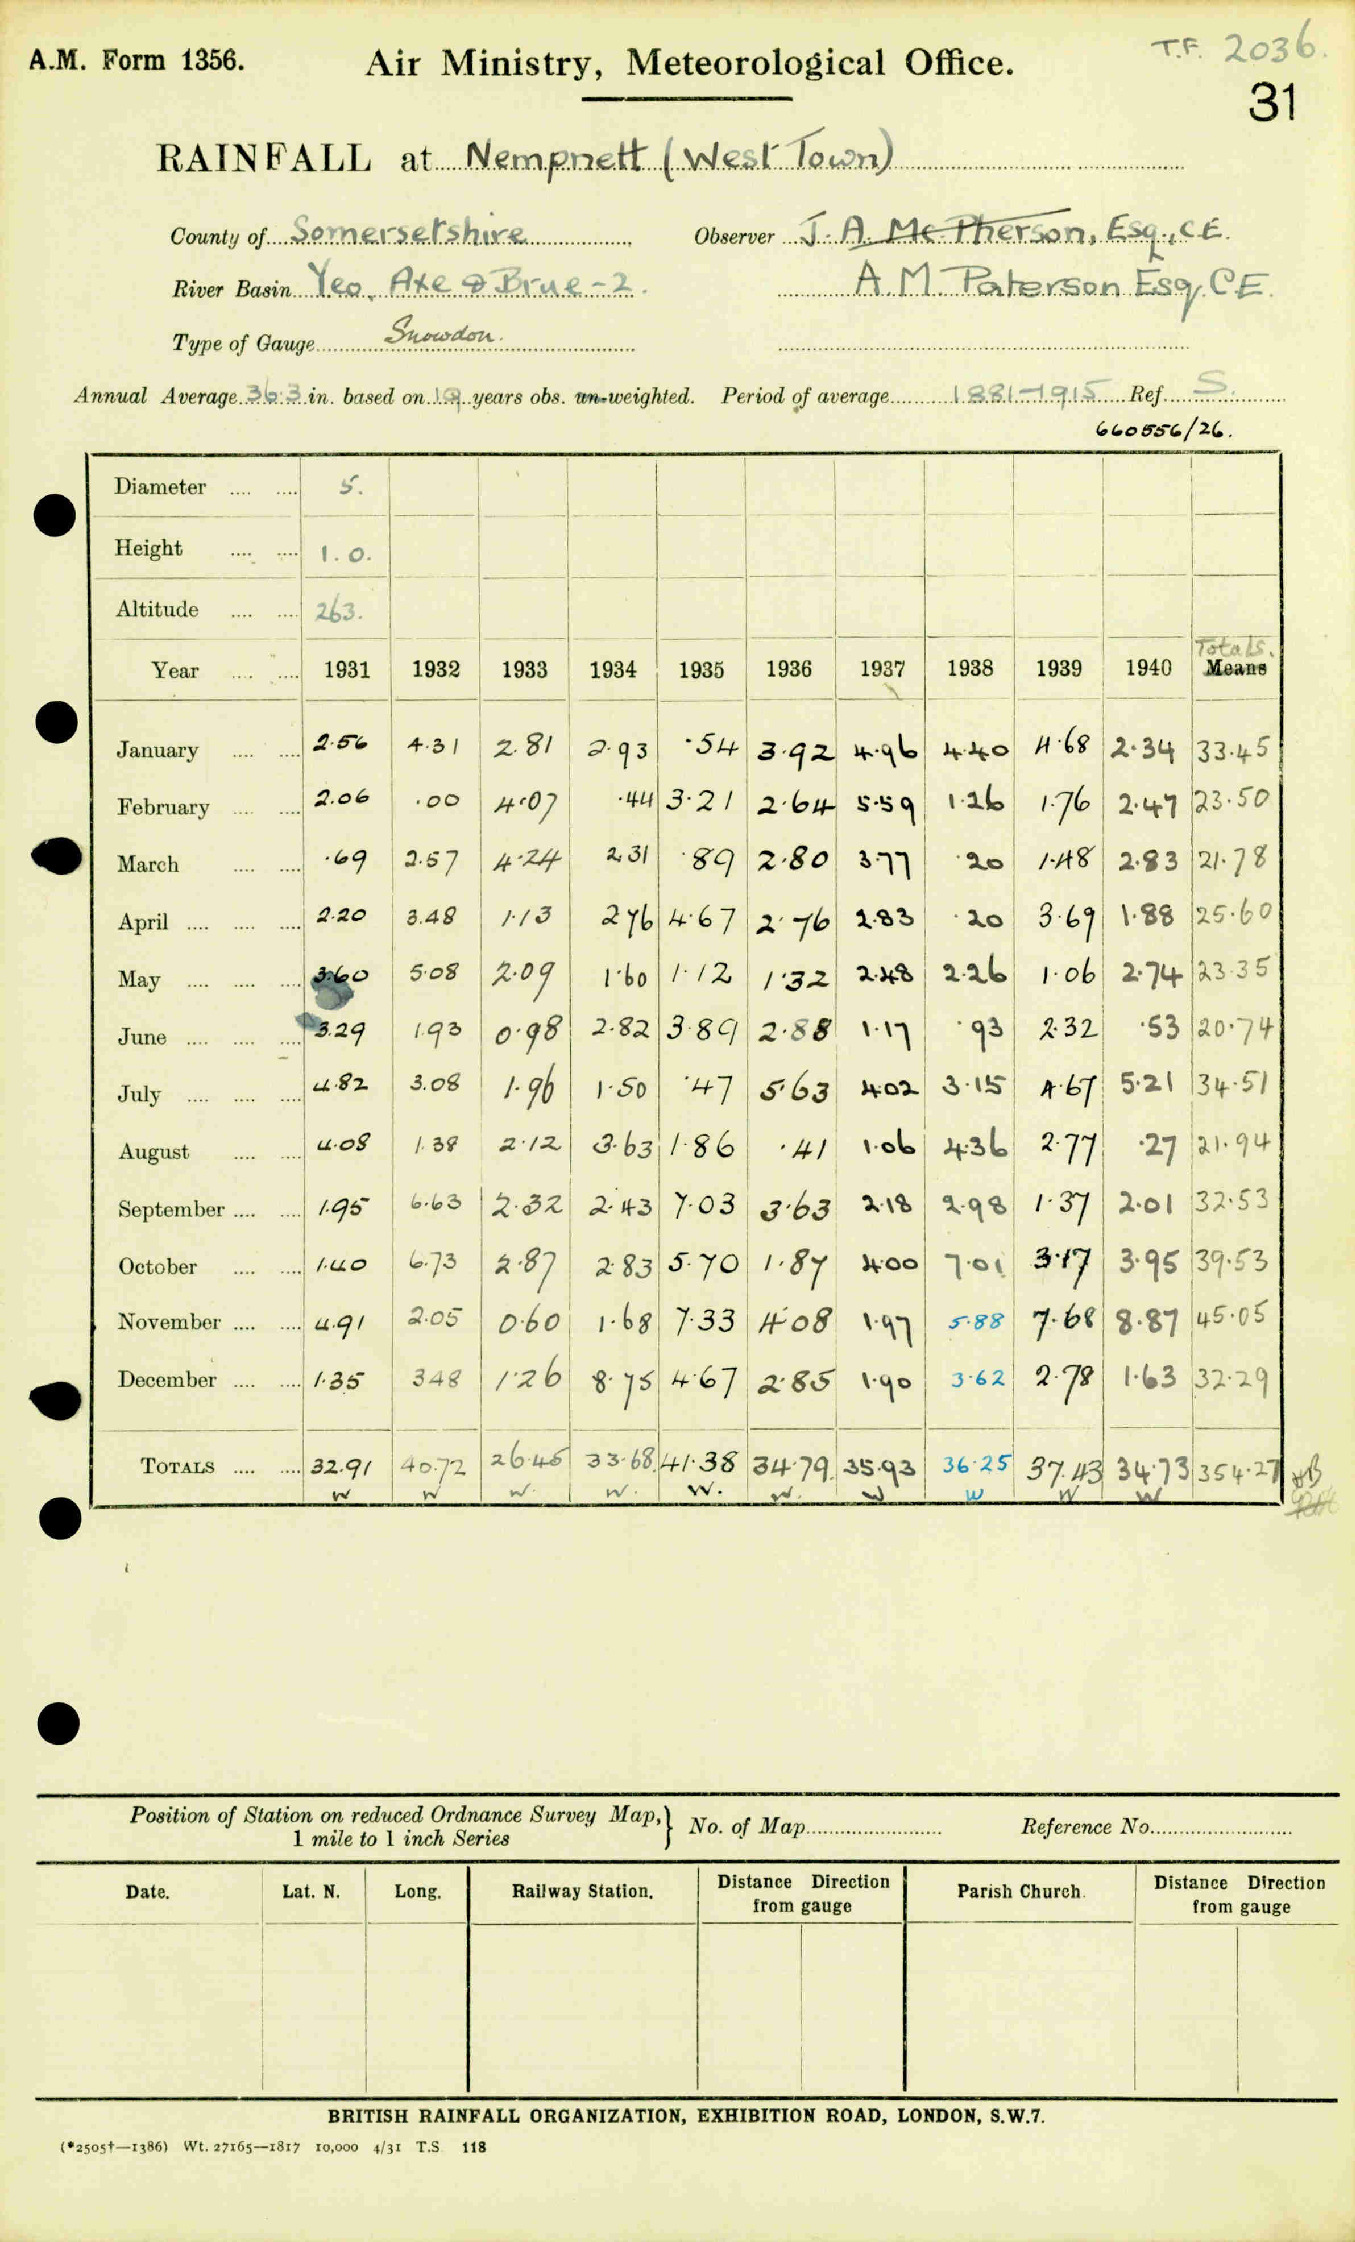 T.F. 2036.
A.M. Form 1356. Air Ministry, Meteorological Office.
31
RAINFALL at Nempnett (West Town)
County of Somersetshire Observer J. A. McPherson, Esq., C.E.
River Basin Yeo, Axe & Brue - 2. A. M. Paterson Esq. C.E.
Type of Gauge Snowdon.
Annual Average 36.3 in. based on 19 years obs. un-weighted. Period of average 1881-1915 Ref. S.
660556/26.
Diameter 5.
Height 1.0.
Altitude 263.
Totals.
Year 1931 1932 1933 1934 1935 1936 1937 1938 1939 1940 Means
January 2.56 4.31 2.81 2.93 .54 3.92 4.96 4.40 4.68 2.34 33.45
February 2.06 .00 4.07 .44 3.21 2.64 5.59 1.26 1.76 2.47 23.50
March .69 2.57 4.24 2.31 .89 2.80 3.77 .20 1.48 2.83 21.78
April 2.20 3.48 1.13 2.76 4.67 2.76 2.83 .20 3.69 1.88 25.60
May 3.60 5.08 2.09 1.60 1.12 1.32 2.48 2.26 1.06 2.74 23.35
June 3.29 1.93 0.98 2.82 3.89 2.88 1.17 .93 2.32 .53 20.74
July 4.82 3.08 1.96 1.50 .47 5.63 4.02 3.15 4.67 5.21 34.51
August 4.08 1.38 2.12 3.63 1.86 .41 1.06 4.36 2.77 .27 21.94
September 1.95 6.63 2.32 2.43 7.03 3.63 2.18 2.98 1.37 2.01 32.53
October 1.40 6.73 2.87 2.83 5.70 1.87 4.00 7.01 3.17 3.95 39.53
November 4.91 2.05 0.60 1.68 7.33 4.08 1.97 5.88 7.68 8.87 45.05
December 1.35 3.48 1.26 8.75 4.67 2.85 1.90 3.62 2.78 1.63 32.29
TOTALS 32.91 40.72 26.45 33.68 41.38 34.79 35.93 36.25 37.43 34.73 354.27
W W W. W. W. W. W W W W
Position of Station on reduced Ordnance Survey Map, } No. of Map Reference No.
1 mile to 1 inch Series
Date. Lat. N. Long. Railway Station. Distance Direction from gauge Parish Church. Distance Direction from gauge
BRITISH RAINFALL ORGANIZATION, EXHIBITION ROAD, LONDON, S.W.7.
(*2505†—1386) Wt. 27165—1817 10,000 4/31 T.S. 118